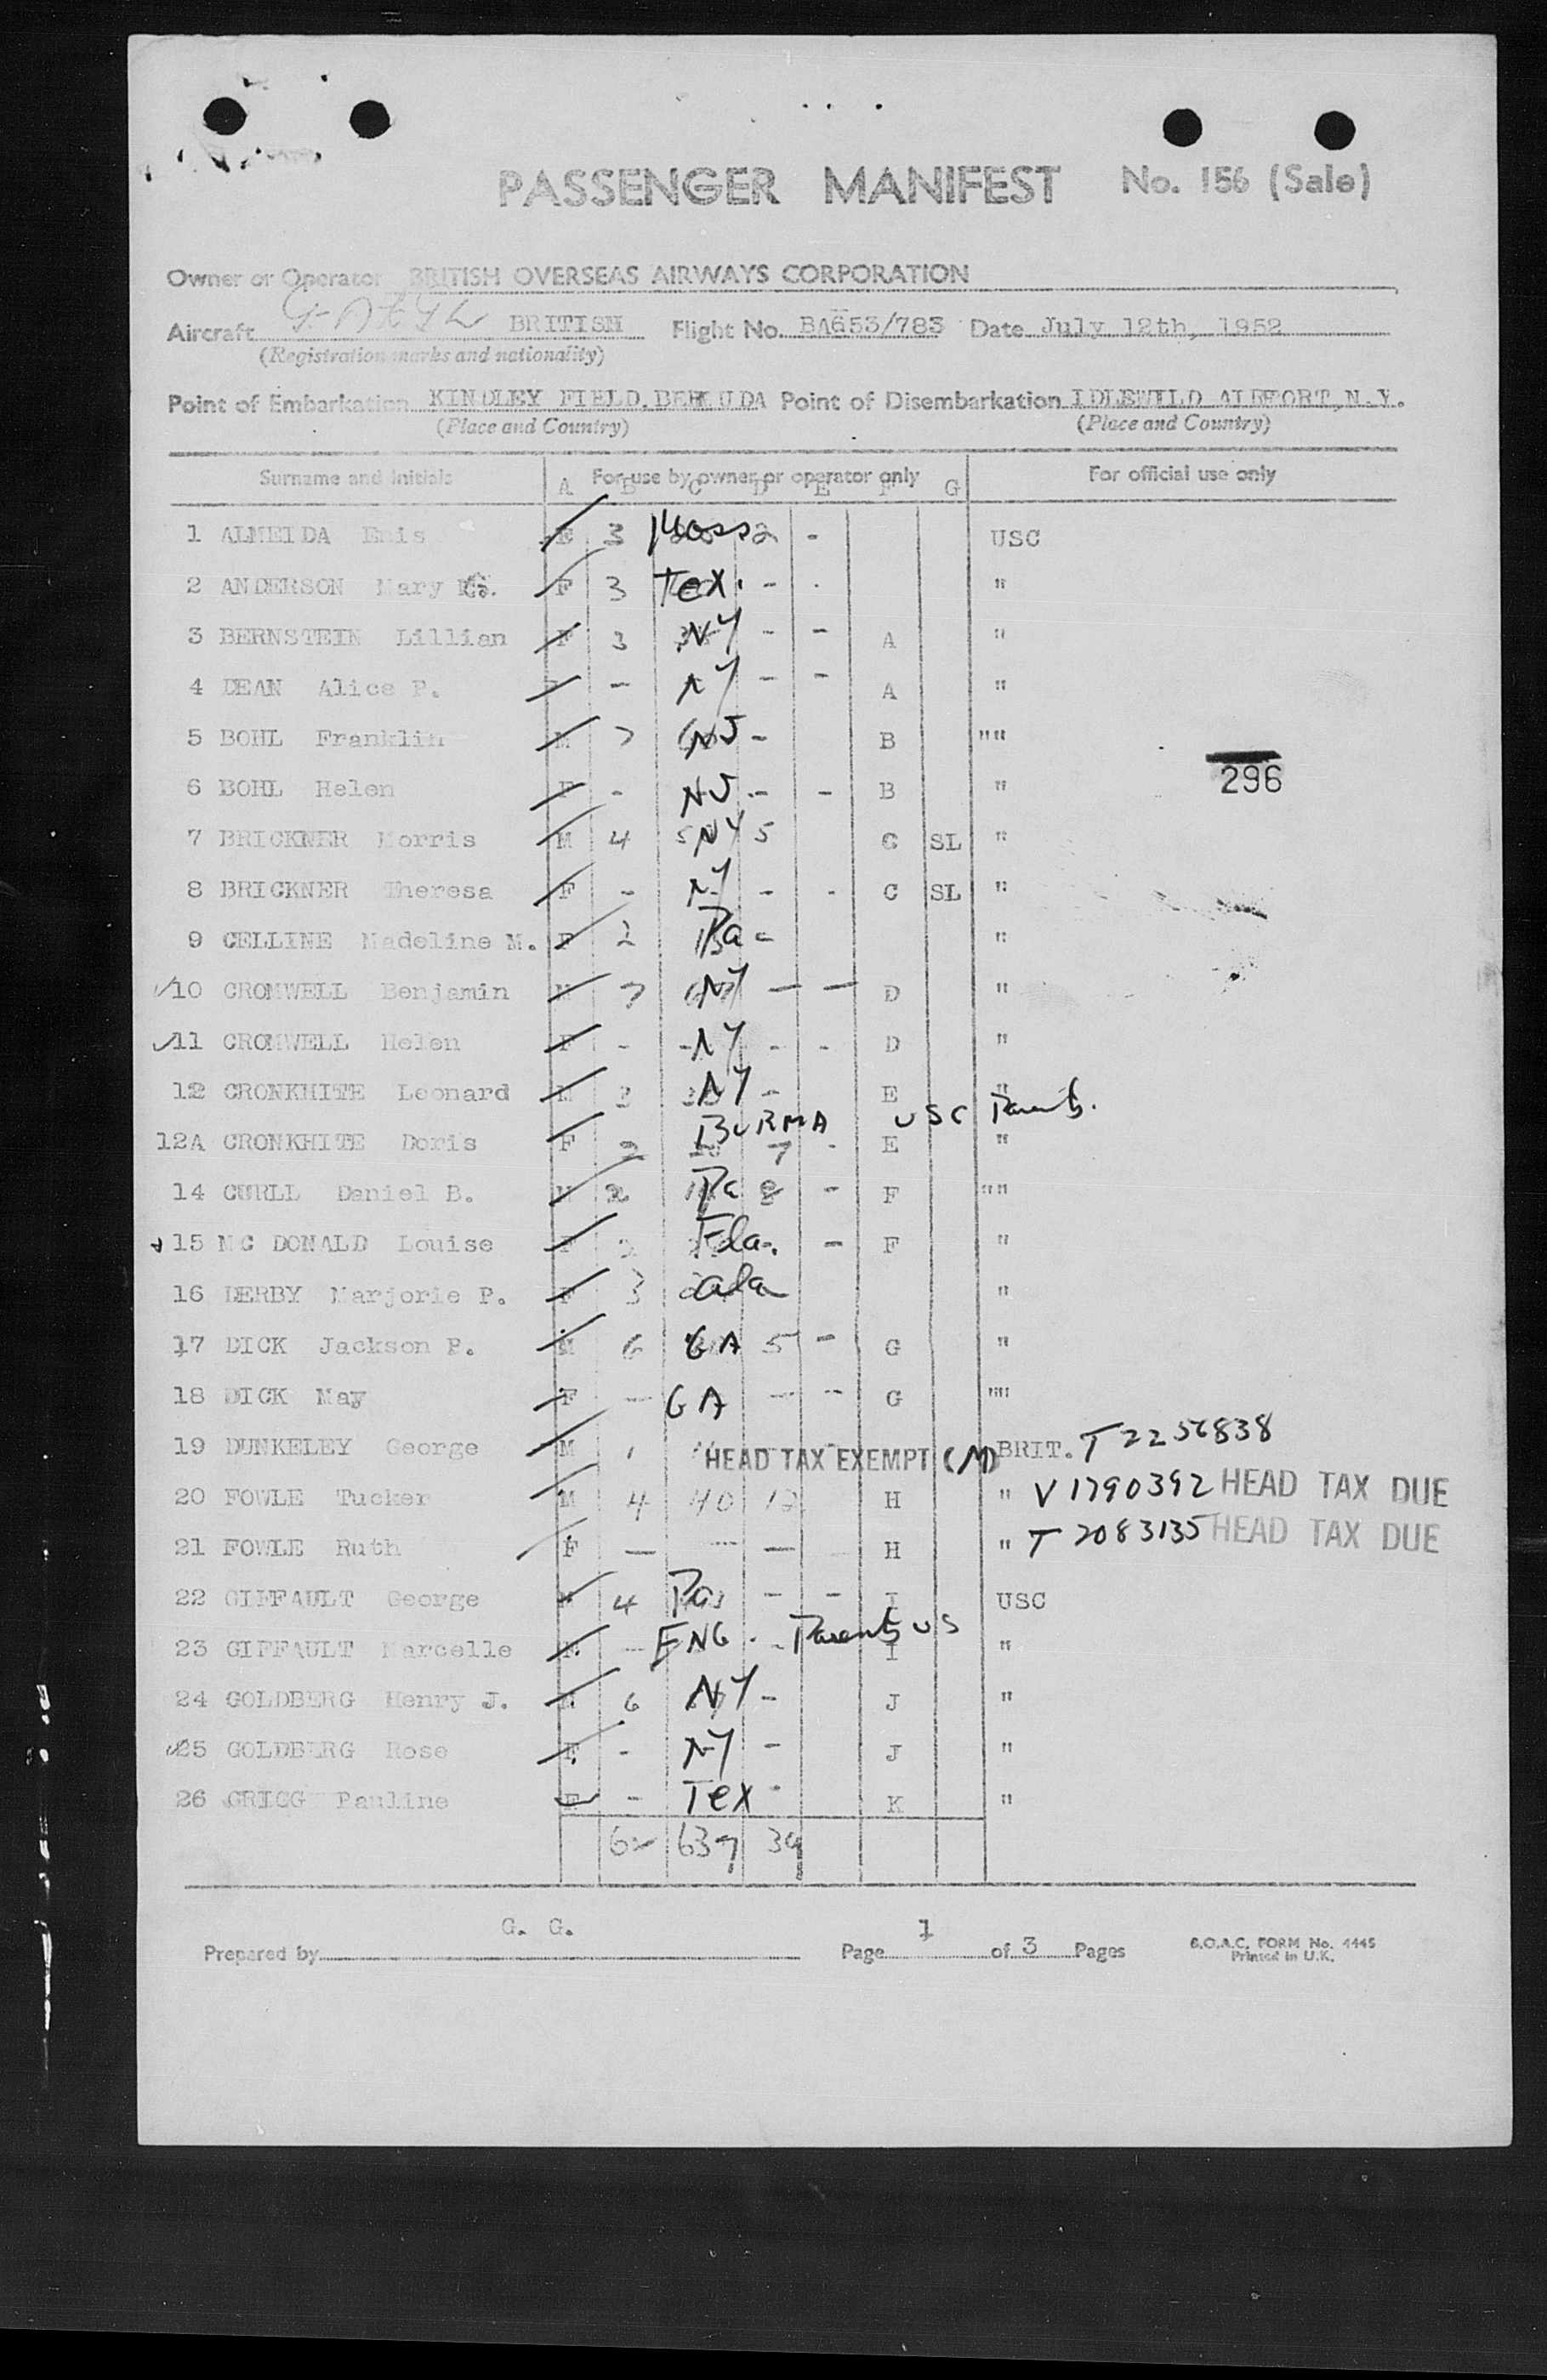 PASSENGER MANIFEST No. 156 (Sale)
Owner or Operator BRITISH OVERSEAS AIRWAYS CORPORATION
Aircraft BRITISH Flight No. BA653/783 Date July 12th, 1952
(Registration marks and nationality)
Point of Embarkation KINDLEY FIELD, BERMUDA Point of Disembarkation IDLEWILD AIRPORT, N.Y.
(Place and Country) (Place and Country)
Surname and Initials For use by owner or operator only For official use only
A B C D E F G
1 ALMEIDA Enis F 3 Mass 2 - USC
2 ANDERSON Mary G. F 3 Tex. - . "
3 BERNSTEIN Lillian F 3 NY - - A "
4 DEAN Alice P. - NY - - A "
5 BOHL Franklin M 7 NJ - B ""
6 BOHL Helen F - NJ - - B "
296
7 BRICKNER Morris M 4 NY 5 C SL "
8 BRICKNER Theresa F - NY - - C SL "
9 CELLINE Madeline M. F 2 Pa - "
10 CROMWELL Benjamin M 7 NY - - D "
11 CROMWELL Helen F - NY - - D "
12 CRONKHITE Leonard M 3 NY - E "
BURMA USC Parents.
12A CRONKHITE Doris F 2 7 - E "
14 CURLL Daniel B. M 2 Pa 8 - F ""
15 MC DONALD Louise F 2 Fla. - F "
16 DERBY Marjorie P. F 3 ala "
17 DICK Jackson P. M 6 GA 5 - G "
18 DICK May F - GA - - G ""
19 DUNKELEY George M 1 HEAD TAX EXEMPT (M) BRIT. T 2256838
20 FOWLE Tucker M 4 40 12 H " V 1790392 HEAD TAX DUE
21 FOWLE Ruth F - - - H " T 2083135 HEAD TAX DUE
22 GIFFAULT George M 4 Pa - - I USC
23 GIFFAULT Marcelle F - ENG. Parents US I "
24 GOLDBERG Henry J. M 6 NY - J "
25 GOLDBERG Rose F - NY - J "
26 GRIGG Pauline F - Tex - K "
62 637 39
G. G.
Prepared by Page 1 of 3 Pages
B.O.A.C. FORM No. 4445
Printed in U.K.